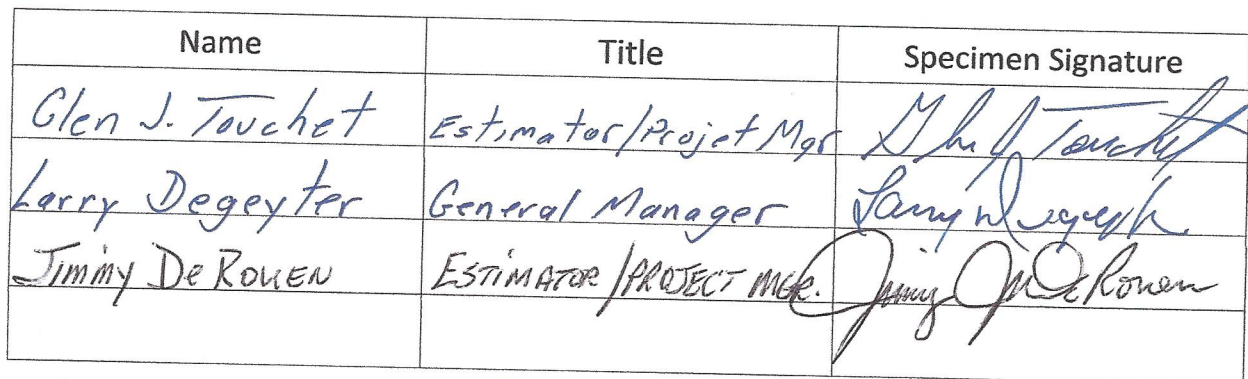 Name Title Specimen Signature
Glen J. Touchet Estimator/Projet Mgr Glen J Touchet
Larry Degeyter General Manager Larry Degeyter
Jimmy DeRouen ESTIMATOR/PROJECT MGR. Jimmy J DeRouen